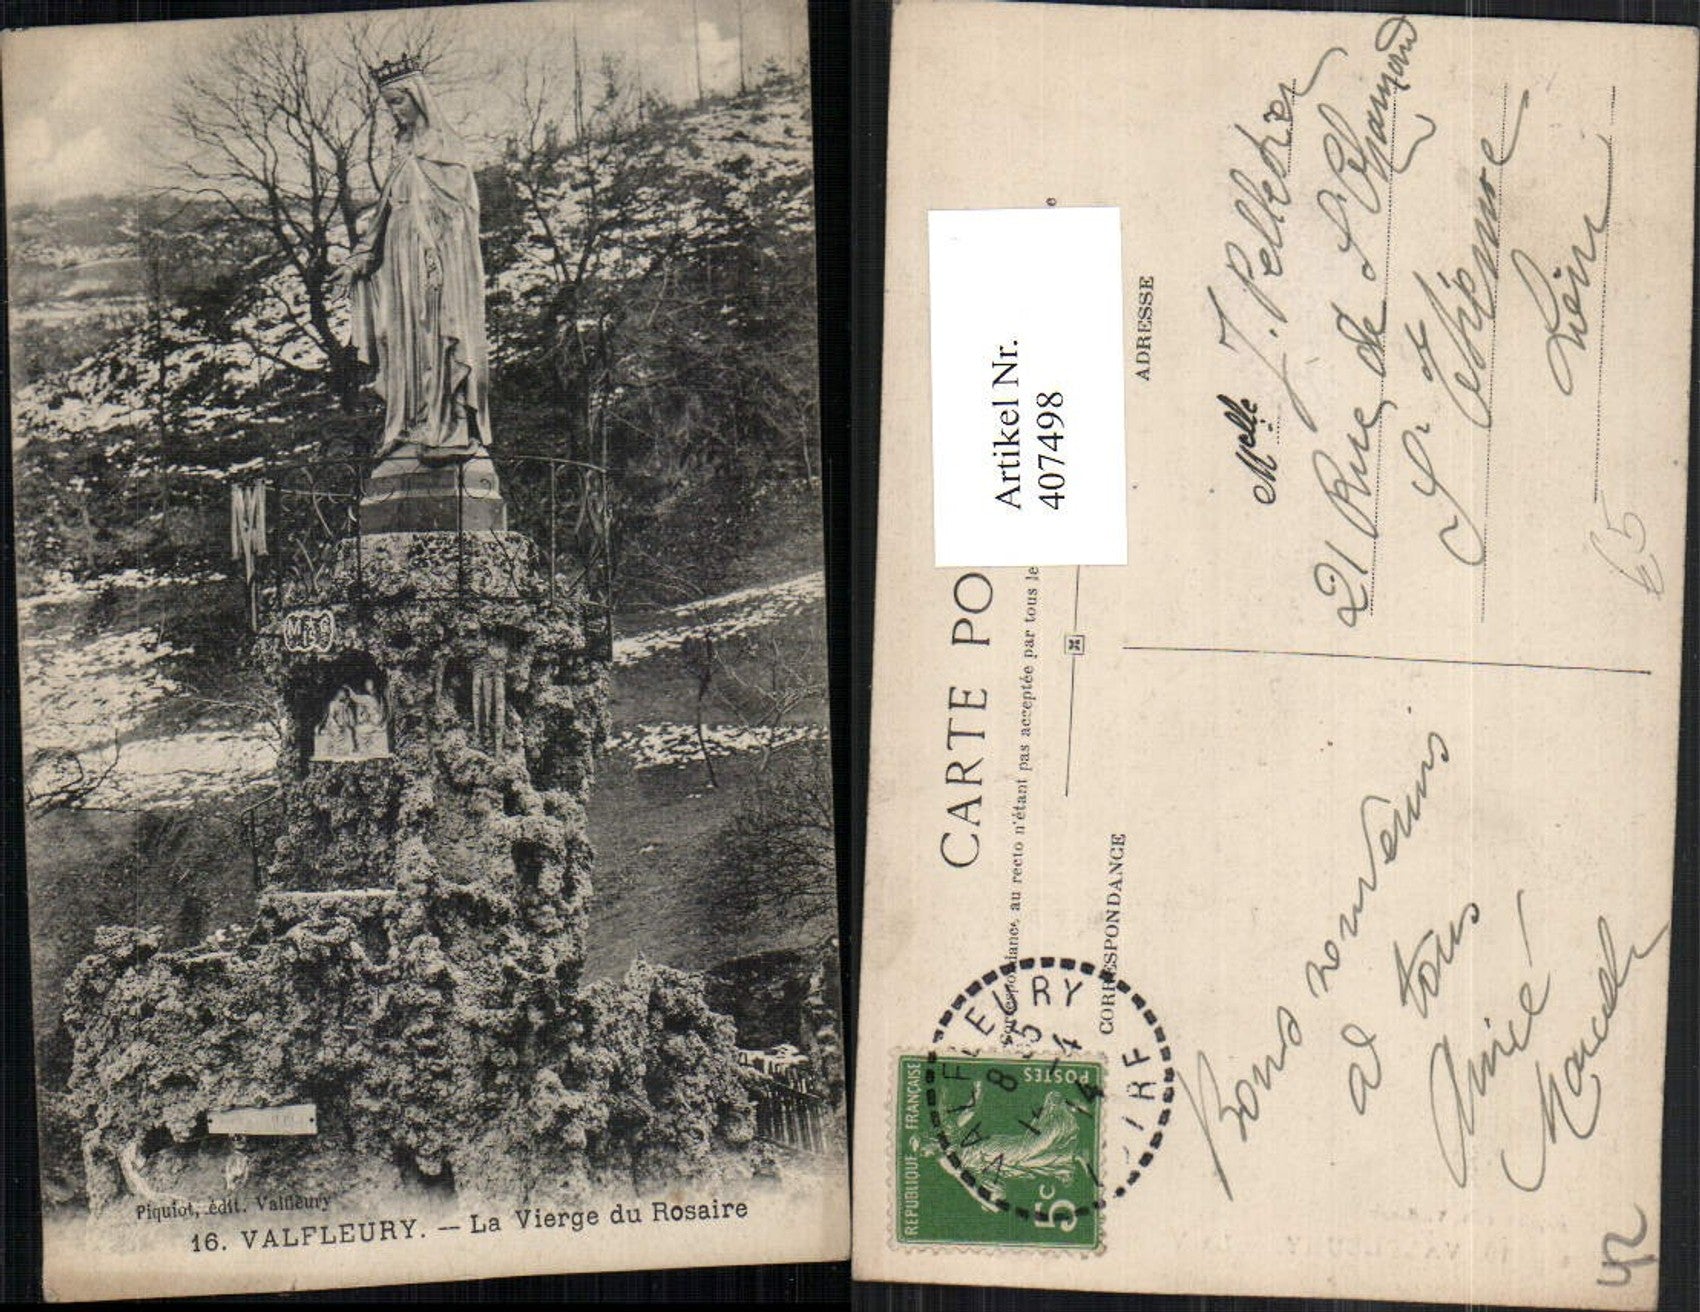 Piquiot, édit. Valfleury
16. VALFLEURY. — La Vierge du Rosaire
CARTE PO
Correspondance au recto n'étant pas acceptée par tous le
e
Artikel Nr.
407498
CORRESPONDANCE
ADRESSE
Bons souvenirs
à tous
Amicé
Marcelle
Melle J. Pelletier
21 Rue de St Chamond
St Etienne
Loire
65
42
VALFLEURY
8
15
-4
14
LOIRE
RÉPUBLIQUE FRANÇAISE
POSTES
5c